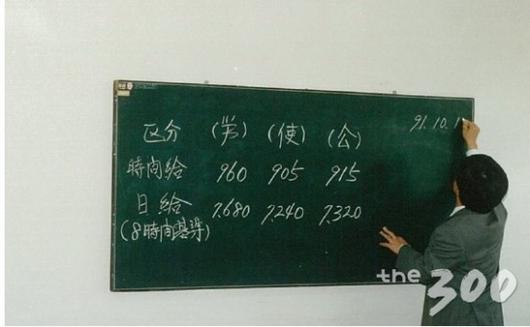 91. 10. 1
区分 (労) (使) (公)
時間給 960 905 915
日給 7,680 7,240 7,320
(8時間基準)
the 300